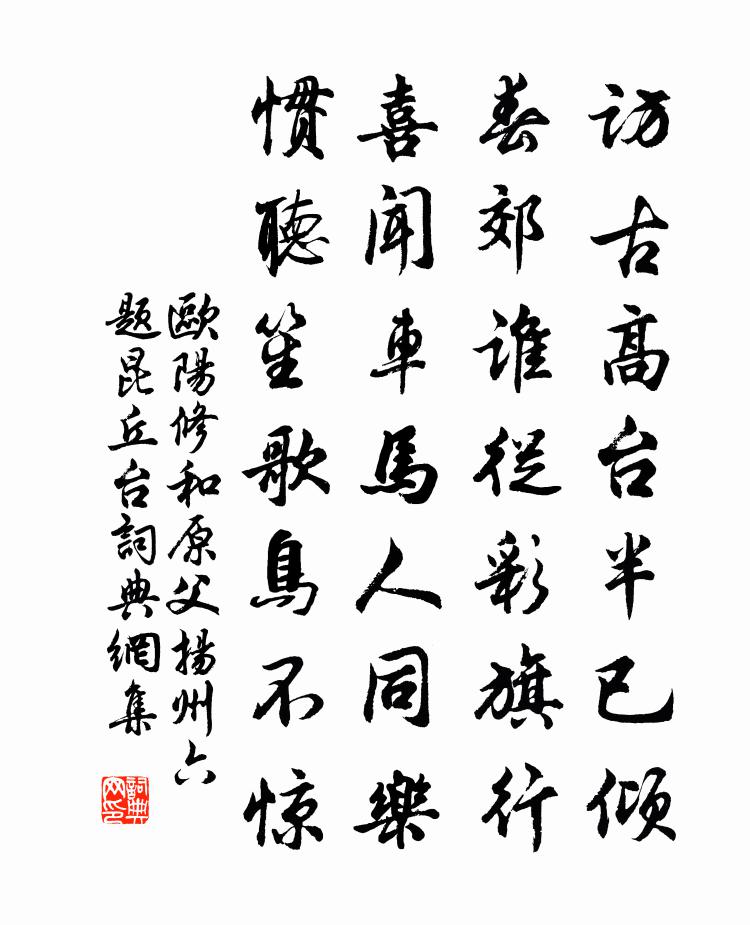 訪古高台半已傾
春郊誰從彩旗行
喜聞車馬人同樂
慣聽笙歌鳥不惊
歐陽修和原父揚州六
题昆丘台詞典網集
詞典网印